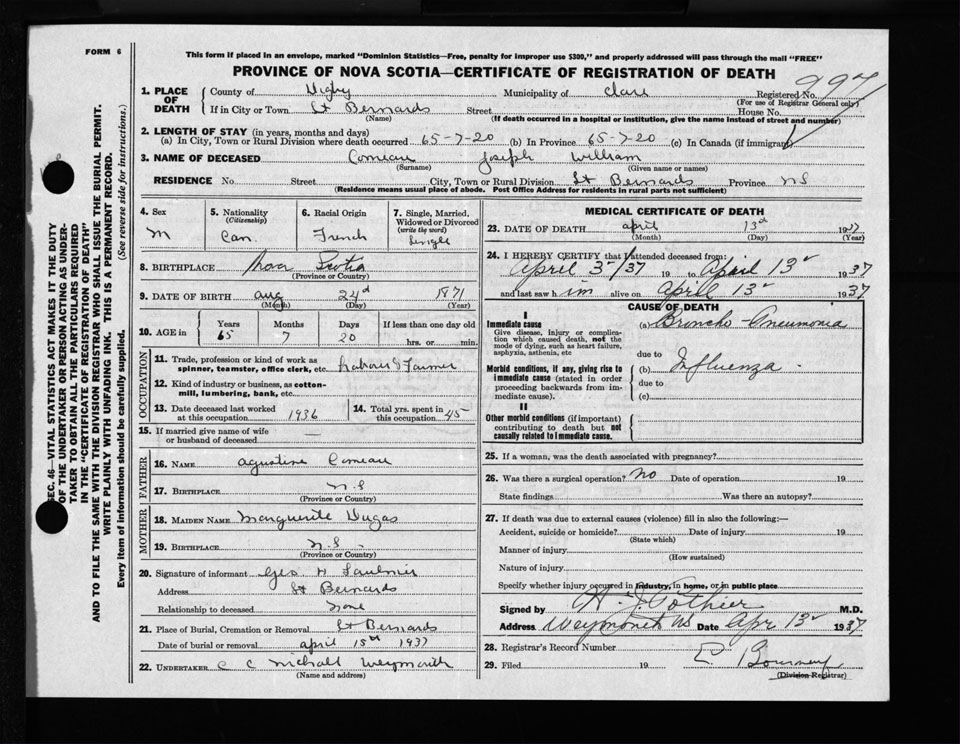 FORM 6
This form if placed in an envelope, marked "Dominion Statistics—Free, penalty for improper use $300," and properly addressed will pass through the mail "FREE"
PROVINCE OF NOVA SCOTIA—CERTIFICATE OF REGISTRATION OF DEATH
1. PLACE OF DEATH
County of Digby Municipality of Clare Registered No. 997
(For use of Registrar General only)
If in City or Town St Bernards Street House No.
(Name) (If death occurred in a hospital or institution, give the name instead of street and number)
2. LENGTH OF STAY (in years, months and days)
(a) In City, Town or Rural Division where death occurred 65-7-20 (b) In Province 65-7-20 (c) In Canada (if immigrant)
3. NAME OF DECEASED Comeau Joseph William
(Surname) (Given name or names)
RESIDENCE No. Street City, Town or Rural Division St Bernards Province NS
(Residence means usual place of abode. Post Office Address for residents in rural parts not sufficient)
4. Sex
M
5. Nationality
(Citizenship)
Can
6. Racial Origin
French
7. Single, Married, Widowed or Divorced
(write the word)
Single
8. BIRTHPLACE Nova Scotia
(Province or Country)
9. DATE OF BIRTH Aug 24 1871
(Month) (Day) (Year)
10. AGE in
Years Months Days If less than one day old
65 7 20 hrs. or min.
OCCUPATION
11. Trade, profession or kind of work as spinner, teamster, office clerk, etc. Labour & Farmer
12. Kind of industry or business, as cotton-mill, lumbering, bank, etc.
13. Date deceased last worked at this occupation 1936
14. Total yrs. spent in this occupation 45
15. If married give name of wife or husband of deceased —
FATHER
16. NAME Agustine Comeau
17. BIRTHPLACE N.S
(Province or Country)
MOTHER
18. MAIDEN NAME Marguerite Dugas
19. BIRTHPLACE N.S
(Province or Country)
20. Signature of informant Geo H Saulnier
Address St Bernards
Relationship to deceased none
21. Place of Burial, Cremation or Removal St Bernards
Date of burial or removal April 15 1937
22. UNDERTAKER C C Weymouth
(Name and address)
MEDICAL CERTIFICATE OF DEATH
23. DATE OF DEATH April 13 1937
(Month) (Day) (Year)
24. I HEREBY CERTIFY that I attended deceased from:
April 3 /37 19 to April 13 1937
and last saw him alive on April 13 1937
CAUSE OF DEATH
I
Immediate cause
Give disease, injury or complication which caused death, not the mode of dying, such as heart failure, asphyxia, asthenia, etc
(a) Broncho-Pneumonia
due to
Morbid conditions, if any, giving rise to immediate cause (stated in order proceeding backwards from immediate cause).
(b) Influenza
due to
(c)
II
Other morbid conditions (if important) contributing to death but not causally related to immediate cause.
25. If a woman, was the death associated with pregnancy?
26. Was there a surgical operation? No Date of operation 19
State findings Was there an autopsy?
27. If death was due to external causes (violence) fill in also the following:—
Accident, suicide or homicide? Date of injury 19
(State which)
Manner of injury
(How sustained)
Nature of injury
Specify whether injury occurred in industry, in home, or in public place
Signed by Pothier M.D.
Address Weymouth NS Date Apr 13 1937
28. Registrar's Record Number
29. Filed 19
(Division Registrar)
SEC. 46—VITAL STATISTICS ACT MAKES IT THE DUTY
OF THE UNDERTAKER OR PERSON ACTING AS UNDER-
TAKER TO OBTAIN ALL THE PARTICULARS REQUIRED
IN THE "CERTIFICATE OF REGISTRATION OF DEATH"
AND TO FILE THE SAME WITH THE DIVISION REGISTRAR WHO SHALL ISSUE THE BURIAL PERMIT.
WRITE PLAINLY WITH UNFADING INK. THIS IS A PERMANENT RECORD.
Every item of information should be carefully supplied. (See reverse side for instructions.)